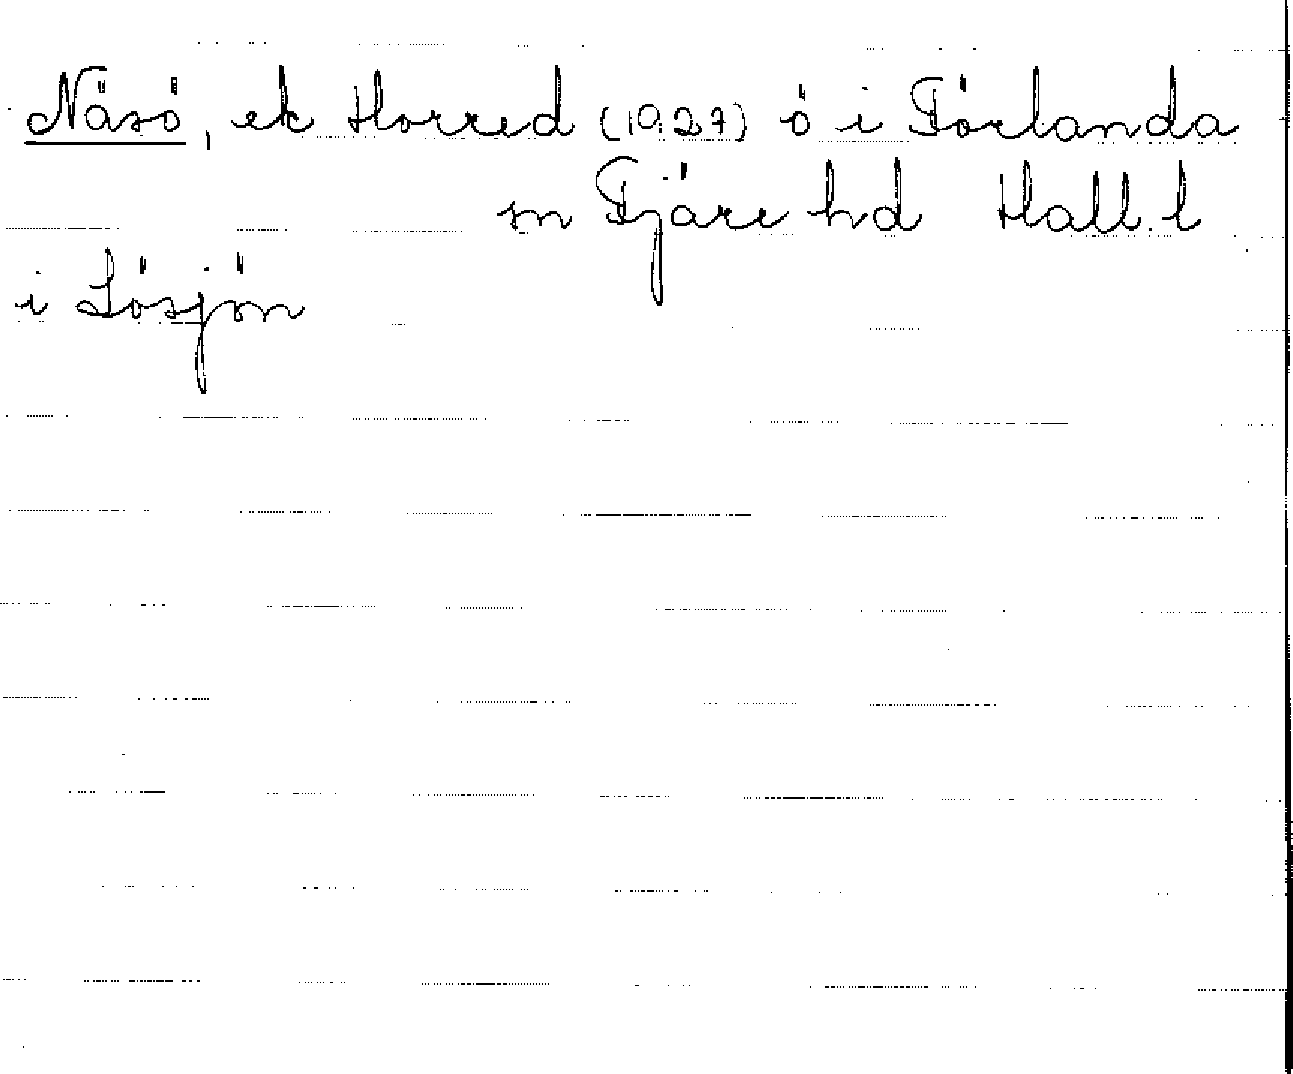 Näsö, ek Horred (1927) ö i Förlanda
sn Fjäre hd Hall. l
i Lösjön